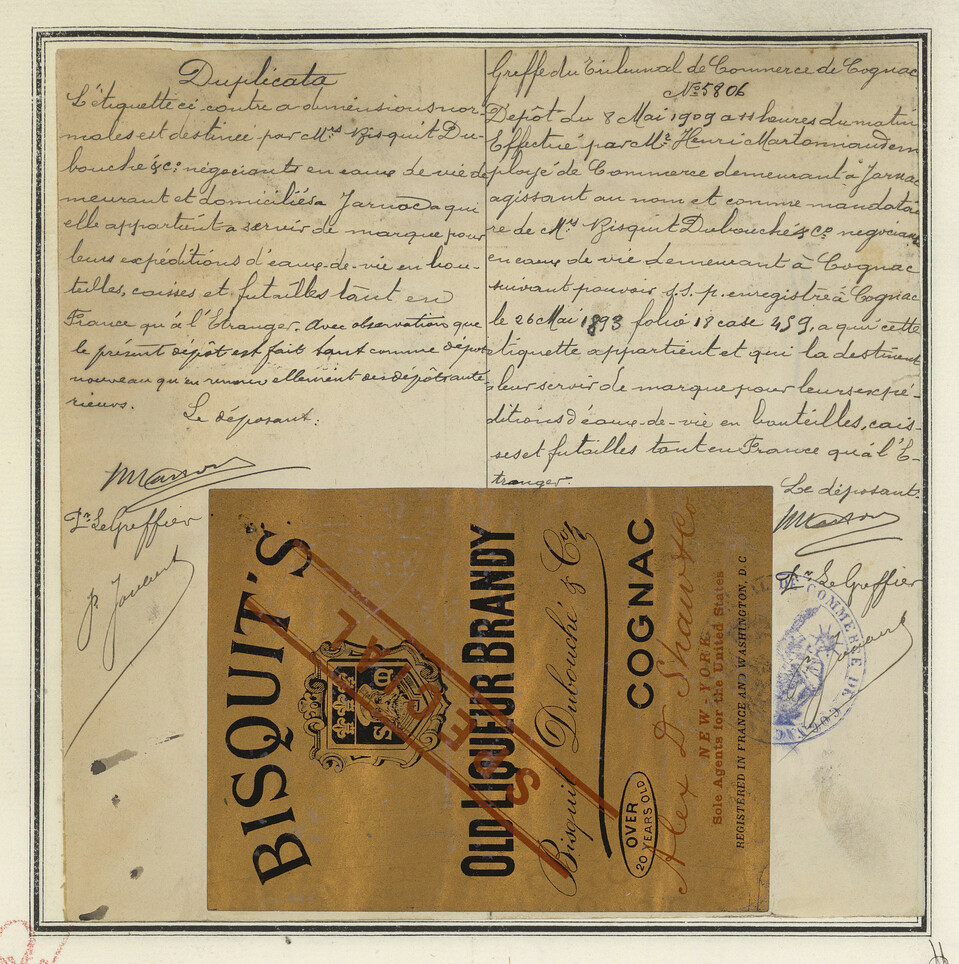 Duplicata
L'étiquette ci contre a dimensions nor-
males est destinée par Mrs Bisquit Du-
bouché & Co négociants en eaux de vie de
meurant et domiciliés a Jarnac a qui
elle appartient a servir de marque pour
leurs expéditions d'eaux-de-vie en bou-
teilles, caisses et futailles tant en
France qu'à l'Etranger. Avec observation que
le présent dépôt est fait tant comme dépôt
nouveau qu'en renouvellement des dépôts anté-
rieurs.
Le déposant:
Pr Le Greffier
Greffe du Tribunal de Commerce de Cognac
No 5806
Depôt du 8 Mai 1909 a 11 heures du matin
Effectué par Mr Henri Martonnaud em
ployé de Commerce demeurant à Jarnac
agissant au nom et comme mandatai
re de Mrs Bisquit Dubouché & Co négociants
en eaux de vie demeurant à Cognac
suivant pouvoir s.s.p. enregistré à Cognac
le 26 Mai 1893 folio 18 case 459, a qui cette
etiquette appartient et qui la destinent
a leur servir de marque pour leurs expé-
ditions d'eaux-de-vie en bouteilles, cais-
ses et futailles tant en France qu'à l'E-
tranger.
Le déposant.
Pr Le Greffier
BISQUIT'S
OLD LIQUEUR BRANDY
Bisquit Dubouché & Co
COGNAC
OVER
20 YEARS OLD
Alex D Shaw & Co
NEW-YORK
Sole Agents for the United States
REGISTERED IN FRANCE AND WASHINGTON, D.C
DE COMMERCE DE COGNAC